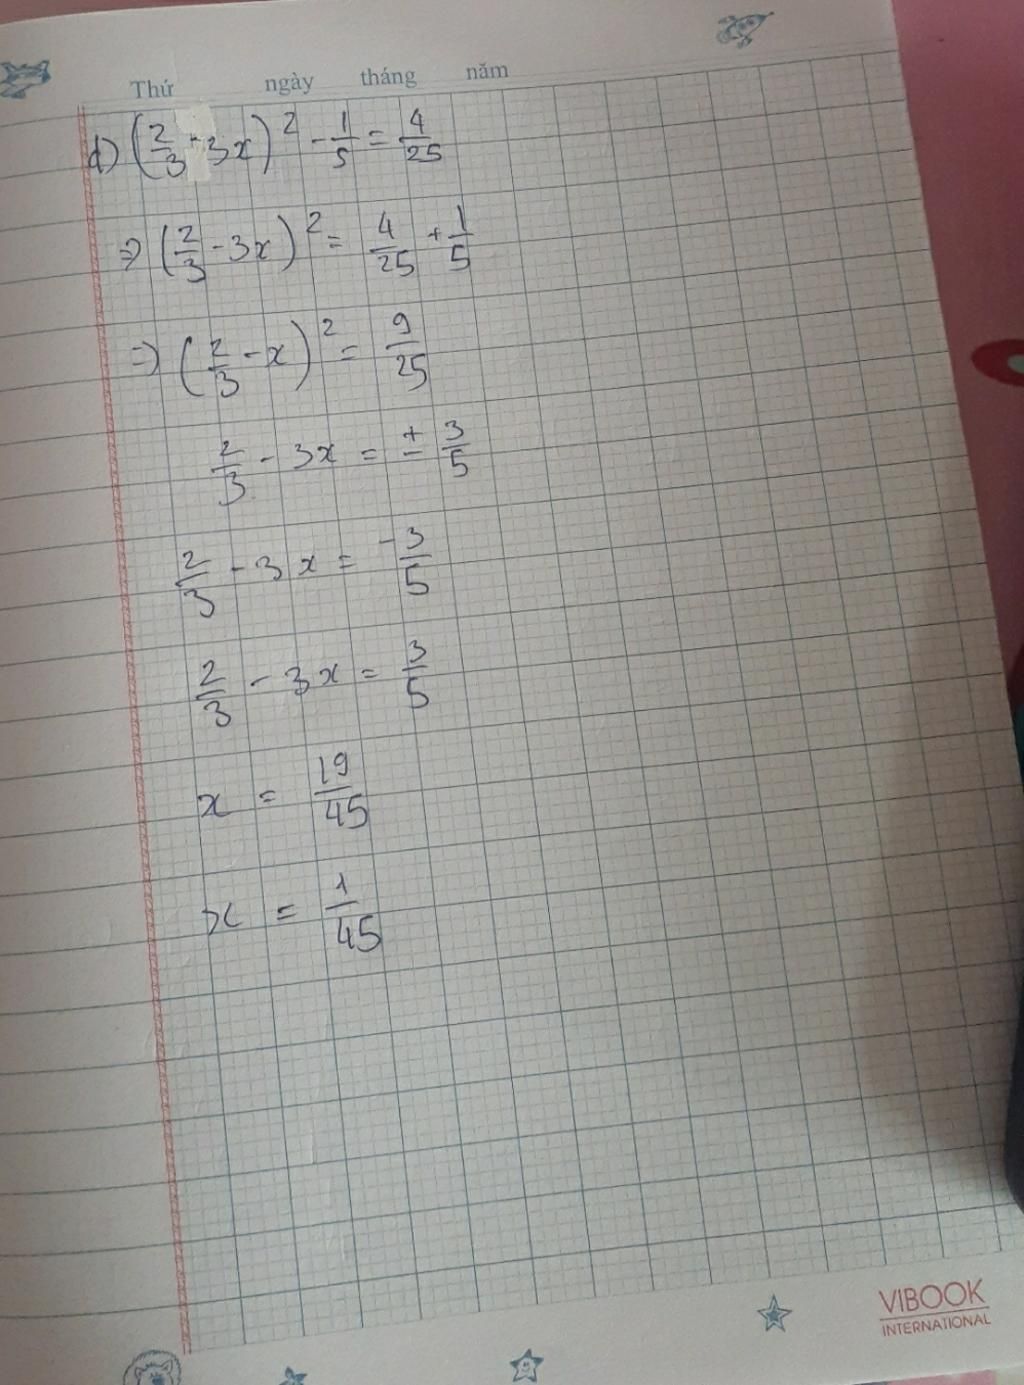 Thứ ngày tháng năm
d) (2/3 - 3x)² - 1/5 = 4/25
=> (2/3 - 3x)² = 4/25 + 1/5
=> (2/3 - x)² = 9/25
2/3 - 3x = ± 3/5
2/3 - 3x = -3/5
2/3 - 3x = 3/5
x = 19/45
x = 1/45
VIBOOK
INTERNATIONAL